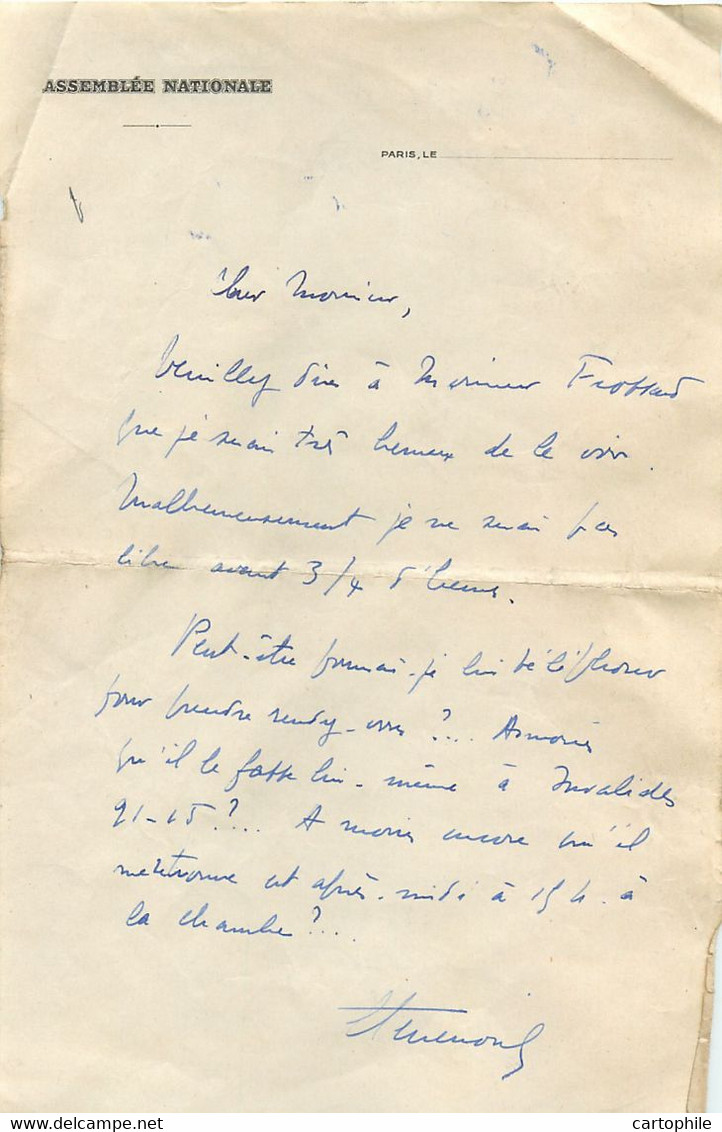 ASSEMBLÉE NATIONALE
PARIS, LE
Cher Monsieur,
Veuillez dire à Monsieur Frossard
que je serais très heureux de le voir.
Malheureusement je ne serai pas
libre avant 3/4 d'heure.
Peut-être pourrais-je lui téléphoner
pour prendre rendez-vous ?... A moins
qu'il le fasse lui-même à Invalides
91-15 ?... A moins encore qu'il
me retrouve cet après-midi à 15 h. à
la chambre ?...
Delcampe.net
cartophile